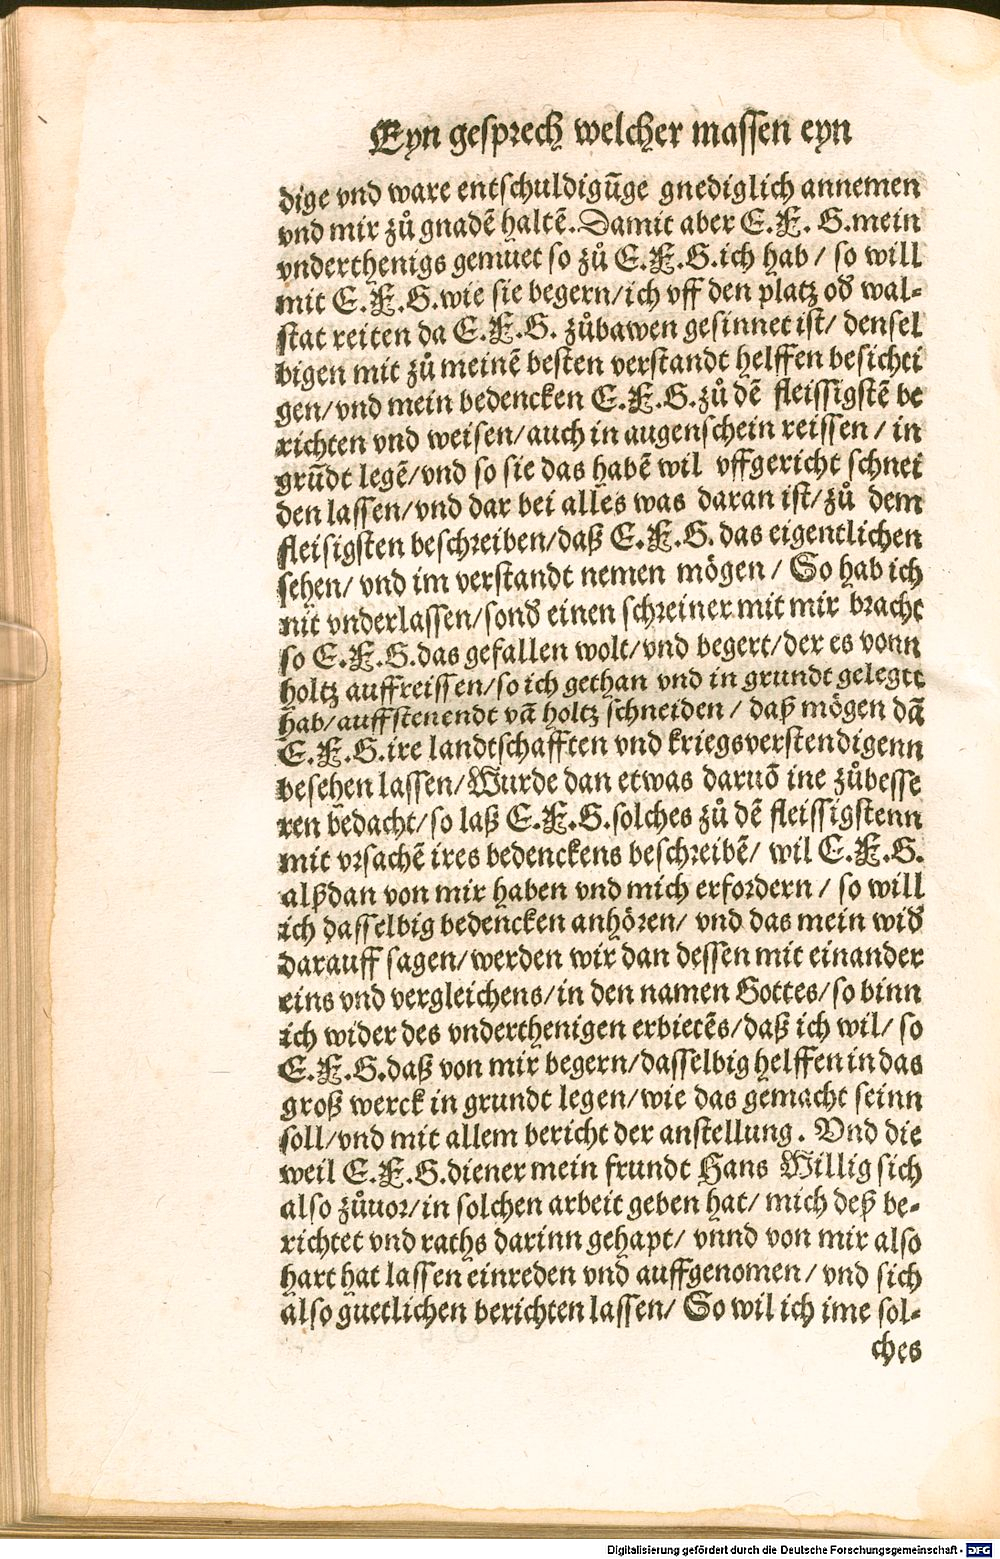 Eyn gesprech welcher massen eyn
dige vnd ware entschuldigūge gnediglich annemen
vnd mir zů gnadē haltē. Damit aber E.F.G. mein
vnderthenigs gemuet so zů E.F.G. ich hab / so will
mit E.F.G. wie sie begern/ich vff den platz oď wal-
stat reiten da E.F.G. zůbawen gesinnet ist/ densel
bigen mit zů meinē besten verstandt helffen besichti
gen/vnd mein bedencken E.F.G. zů dē fleissigstē be
richten vnd weisen/auch in augenschein reissen / in
grūdt legē/vnd so sie das habē wil vffgericht schnei
den lassen/vnd dar bei alles was daran ist/zů dem
fleisigsten beschreiben/daß E.F.G. das eigentlichen
sehen/ vnd im verstandt nemen mögen / So hab ich
nit vnderlassen/sonď einen schreiner mit mir bracht
so E.F.G. das gefallen wolt/vnd begert/der es vonn
holtz auffreissen/so ich gethan vnd in grundt gelegtt
hab/auffstenendt vā holtz schneiden / daß mögen dā
E.F.G. ire landtschafften vnd kriegsverstendigenn
besehen lassen/Wurde dan etwas daruō ine zůbesse
ren bedacht/so laß E.F.G. solches zů dē fleissigstenn
mit vrsachē ires bedenckens beschreibē/ wil E.F.G.
alßdan von mir haben vnd mich erfordern / so will
ich dasselbig bedencken anhören/ vnd das mein wiď
darauff sagen/werden wir dan dessen mit einander
eins vnd vergleichens/in den namen Gottes/so binn
ich wider des vnderthenigen erbietēs/daß ich wil/ so
E.F.G. daß von mir begern/dasselbig helffen in das
groß werck in grundt legen/wie das gemacht seinn
soll/vnd mit allem bericht der anstellung. Vnd die
weil E.F.G. diener mein frundt Hans Willig sich
also zůuor/in solchen arbeit geben hat/ mich deß be-
richtet vnd raths darinn gehapt/ vnnd von mir also
hart hat lassen einreden vnd auffgenomen/ vnd sich
also guetlichen berichten lassen/ So wil ich ime sol-
ches
Digitalisierung gefördert durch die Deutsche Forschungsgemeinschaft - DFG